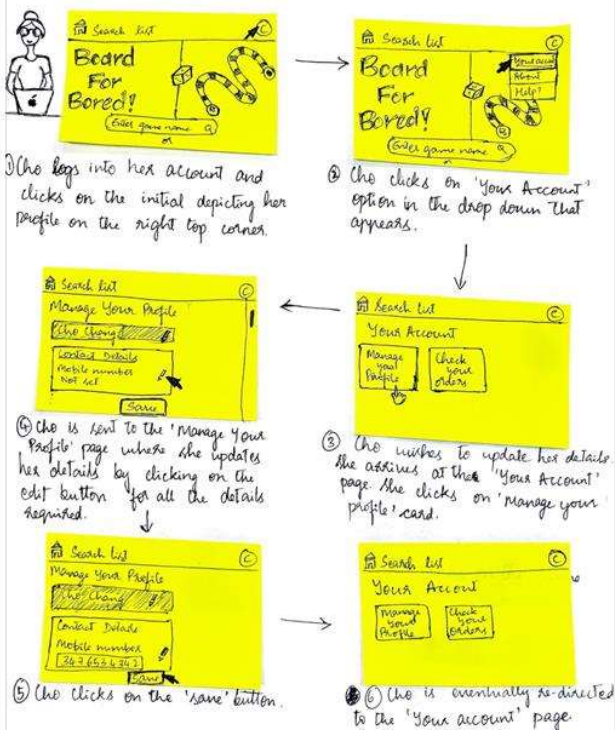 Search list
C
Board
For
Bored!
Enter game name
or
① Cho logs into her account and
clicks on the initial depicting her
profile on the right top corner.
Search list
C
Board
For
Bored!
Your accou
About
Help?
Enter game name
or
② Cho clicks on 'Your Account'
option in the drop down that
appears.
Search list
C
Your Account
Manage
your
Profile
Check
your
orders
③ Cho wishes to update her details.
She arrives at the 'Your Account'
page. She clicks on 'Manage your
profile' card.
Search list
C
Manage Your Profile
Cho Chang
Contact Details
Mobile number
Not set
Save
④ Cho is sent to the 'Manage Your
Profile' page where she updates
her details by clicking on the
edit button for all the details
required.
Search list
C
Manage Your Profile
Cho Chang
Contact Details
Mobile number
Save
⑤ Cho clicks on the 'save' button.
Search list
C
Your Account
Manage
Your
Profile
Check
Your
Orders
⑥ Cho is eventually re-directed
to the 'Your account' page.